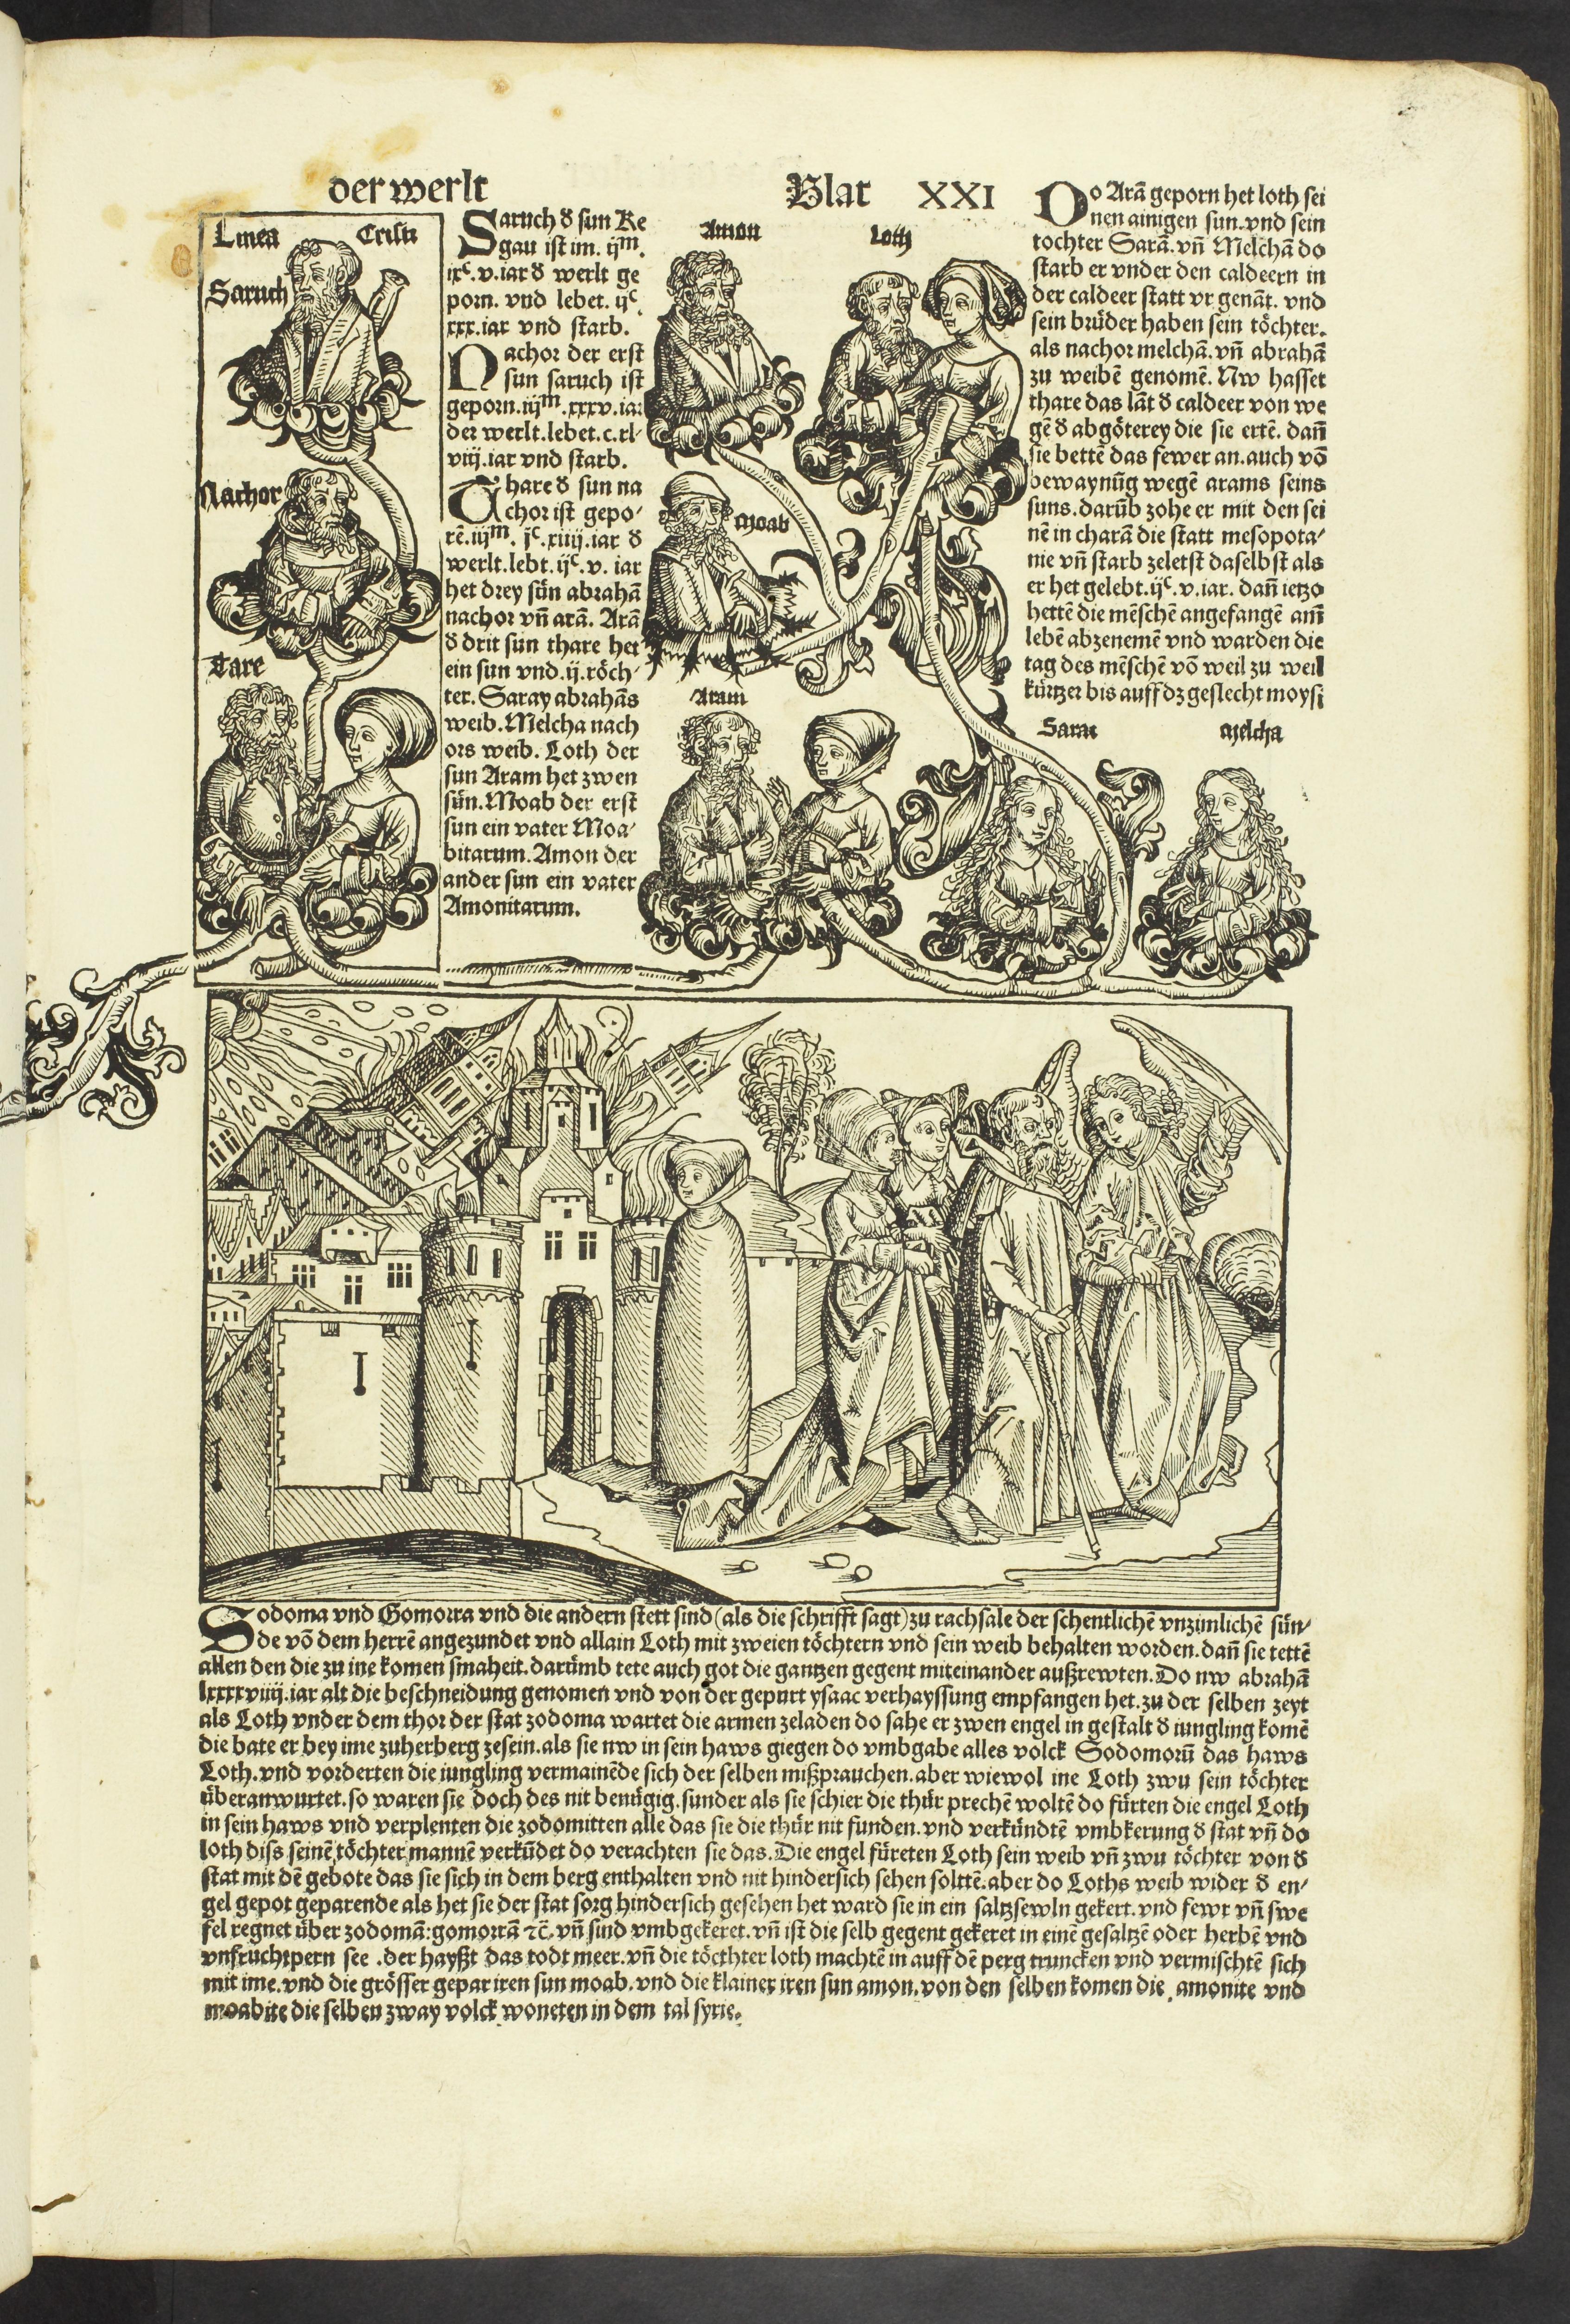 der werlt
Blat XXI
Linea Cristi
Saruch
Nachor
Tare
Saruch d̕ sun Re
gau ist im. ijᵐ.
ixᶜ.v.iar d̕ werlt ge
porn. vnd lebet. ijᶜ
xxx.iar vnd starb.
Nachor der erst
sun saruch ist
geporn.iijᵐ.xxxv.iar
der werlt.lebet.c.xl-
viij.iar vnd starb.
Thare d̕ sun na
chor ist gepo-
rē.iijᵐ. jᶜ.xiiij.iar d̕
werlt.lebt.ijᶜ.v. iar
het drey sün abrahā
nachor vñ arā. Arā
d̕ drit sun thare het
ein sun vnd.ij.töch-
ter. Saray abrahās
weib. Melcha nach
ors weib. Loth der
sun Aram het zwen
sün. Moab der erst
sun ein vater Moa-
bitarum. Amon der
ander sun ein vater
Amonitarum.
Amon
Loth
Moab
Aram
Sarai
Melcha
Do Arā geporn het loth sei
nen ainigen sun.vnd sein
tochter Sarā.vñ Melchā do
starb er vnder den caldeern in
der caldeer statt vr genāt. vnd
sein brüder haben sein töchter.
als nachor melchā.vñ abrahā
zu weibē genomē. Nw hasset
thare das lāt d̕ caldeer von we
gē d̕ abgöterey die sie ertē. dañ
sie bettē das fewer an.auch vō
bewaynūg wegē arams seins
suns.darūb zohe er mit den sei
nē in charā die statt mesopota-
nie vñ starb zeletst daselbst als
er het gelebt.ijᶜ.v.iar. dañ ietzo
hettē die mēschē angefangē am̄
lebē abzenemē vnd warden die
tag des mēschē vō weil zu weil
kürtzer bis auff dz geslecht moysi
Sodoma vnd Gomorra vnd die andern stett sind (als die schrifft sagt) zu rachsale der schentlichē vnzimlichē sün-
de vō dem herrē angezundet vnd allain Loth mit zweien töchtern vnd sein weib behalten worden.dañ sie tettē
allen den die zu ine komen smaheit.darümb tete auch got die gantzen gegent miteinander außrewten.Do nw abrahā
lxxxxviiij.iar alt die beschneidung genomen vnd von der gepurt ysaac verhayssung empfangen het.zu der selben zeyt
als Loth vnder dem thor der stat zodoma wartet die armen zeladen do sahe er zwen engel in gestalt d̕ iungling komē
die bate er bey ime zuherberg zesein.als sie nw in sein haws giegen do vmbgabe alles volck Sodomorū das haws
Loth.vnd vorderten die iungling vermainēde sich der selben mißprauchen.aber wiewol ine Loth zwu sein töchter
überanwurtet.so waren sie doch des nit benügig.sunder als sie schier die thür prechē woltē do fürten die engel Loth
in sein haws vnd verplenten die zodomitten alle das sie die thür nit funden.vnd verkündtē vmbkerung d̕ stat vñ do
loth diss seinē töchter mannē verkūdet do verachten sie das.Die engel füreten Loth sein weib vñ zwu töchter von d̕
stat mit dē gebote das sie sich in dem berg enthalten vnd nit hindersich sehen solttē.aber do Loths weib wider d̕ en-
gel gepot geparende als het sie der stat sorg hindersich gesehen het ward sie in ein saltzsewln gekert.vnd fewr vñ swe
fel regnet über zodomā:gomorrā ⁊c̄. vñ sind vmbgekeret.vñ ist die selb gegent gekeret in einē gesaltzē oder herbē vnd
vnfruchtpern see .der hayßt das todt meer.vñ die töcthter loth machtē in auff dē perg truncken vnd vermischtē sich
mit ime.vnd die grösser gepar iren sun moab.vnd die klainer iren sun amon.von den selben komen die amonite vnd
moabite die selben zway volck woneten in dem tal syrie.